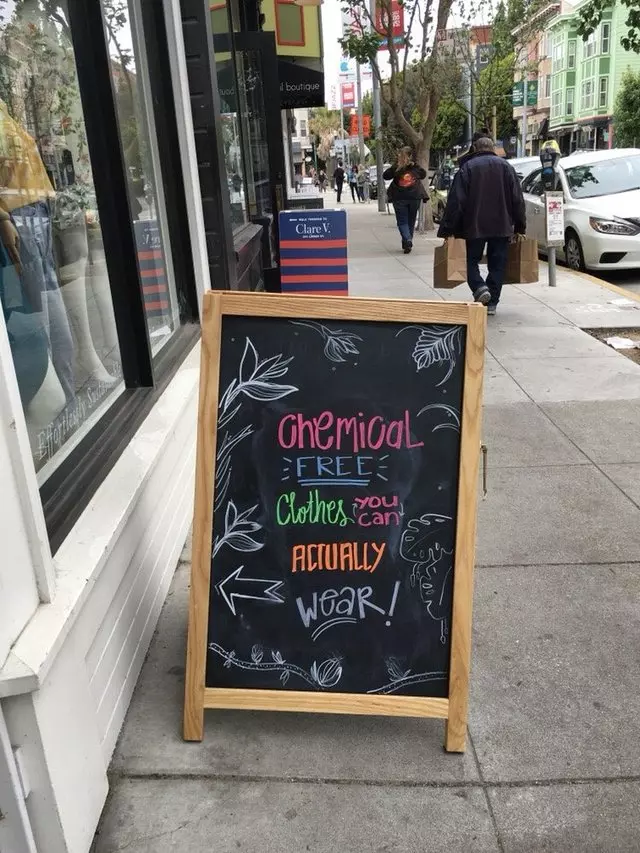 il boutique
Clare V.
Effortlessly
Chemical
FREE
Clothes you can
ACTUALLY
wear!